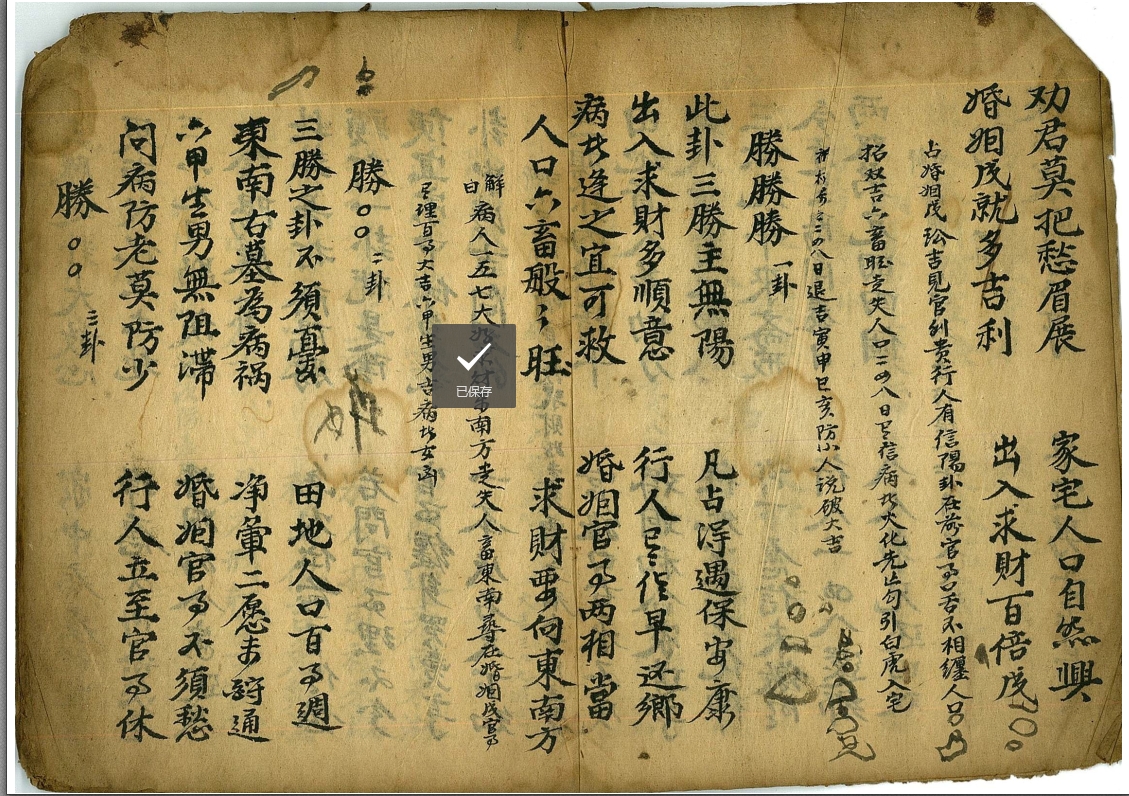 劝君莫把愁眉展 家宅人口自然興
婚姻成就多吉利 出入求財百倍成
占婚姻成 訟吉見官到贵行人有信陽卦在前官口舌不相纏人口
招双吉六畜旺走失人口二四八日信病火化先勾引白虎入宅
二四八日退吉寅申巳亥防小人说破大吉
勝勝勝 一卦
此卦三勝主無陽 凡占得遇保安康
出入求財多順意 行人作早还鄉
病逢之宜可救 婚姻官两相當
人口六畜般々旺 求財要向東南方
解曰 病人五七大 南方走失人畜東南尋在婚姻成官
理百大吉六甲生男吉病女凶
勝〇〇 二卦
三勝之卦不須憂 田地人口百週
東南右墓為病祸 净二愿未通
六甲生男無阻滞 婚姻官不須愁
問病防老莫防少 行人立至官休
勝〇〇 三卦
已保存